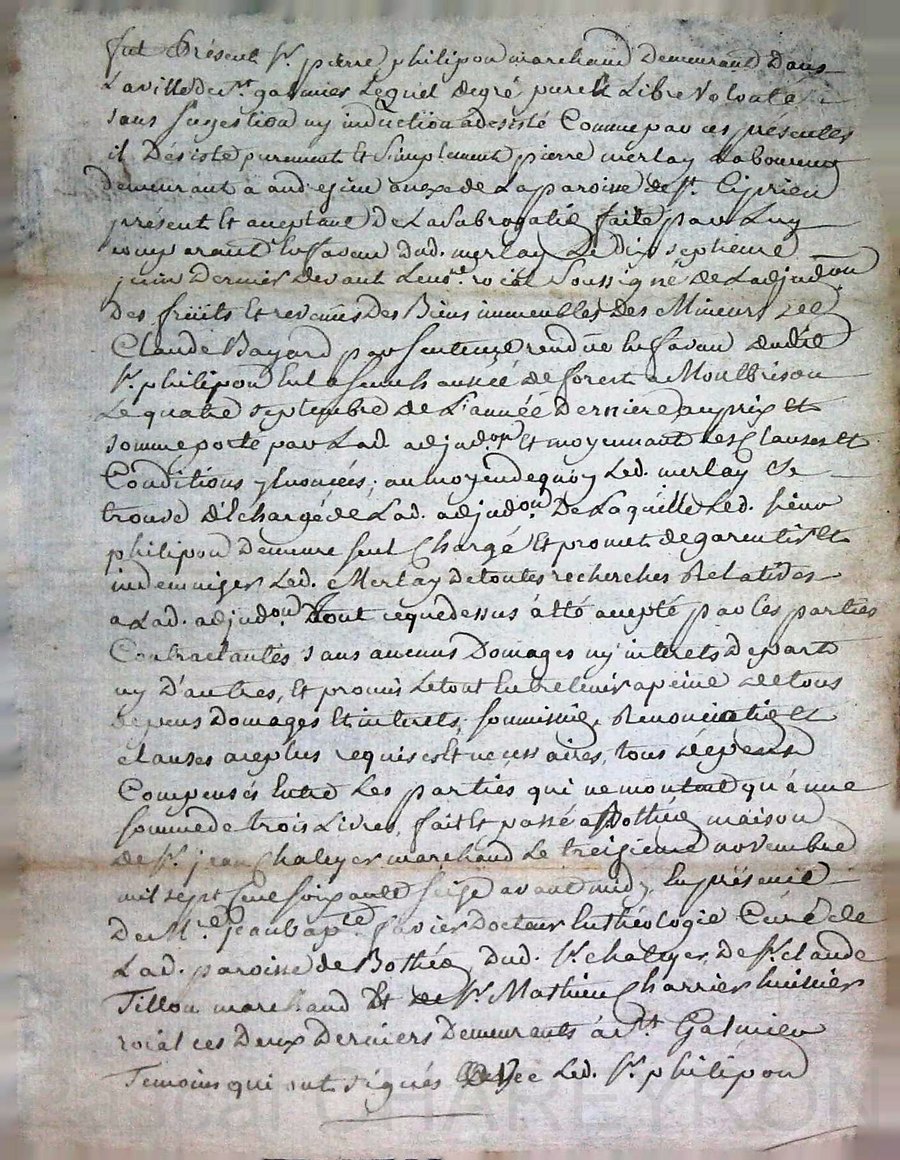 fut Présent Sr. pierre philipon marchand Demeurant Dans
La ville de St. galmier Lequel de gré pure et Libre volonté
sans sugestion ny induction a desisté Comme par ces présentes
il Désiste purement et simplement pierre merlay Laboureur
demeurant a andresieu anexe de La paroisse de St. Ciprien
présent et aceptant De La subrogatie faite par Luy
comparant en faveur dud. merlay Le dix septieme
juin Dernier devant Le nre. roial soussigné de Ladjudon
Des fruits et revenus Des Biens immeubles Des Mineurs de
Claude Bayard par sentence rendüe en faveur dudit
Sr. philipon en la senechaussée de forest a Montbrison
Le quatre septembre de L'année derniere au prix et
somme porté par Lad. adjudon. et moyennant Les Clauses et
Conditions y enoncées; au moyen de quoy Led. merlay se
trouve déchargé de Lad. adjudon. De Laquelle Led. sieur
philipon Demeure seul Chargé et promet de garentir et
indemniser Led. Merlay de toutes recherches Relatives
a Lad. adjudon. tout ce que dessus a été acepté par Les parties
Contractantes sans aucuns Domages ny interets de part
ny D'autres, et promis Le tout entretenir a peine de tous
depens Domages et interets, soumissie, Renonciatie et
clauses a ce plus requises et necessaires, tous depens
Compensés entre Les parties qui ne montent qu'à une
somme de trois Livres, fait et passé a Bothéo maison
de Sr. jean Chaleyer marchand Le treizieme novembre
mil sept Cent soixante seize avant midy en présence
De Mre. jean bapte. Docteur en théologie Curé de
Lad. paroisse de Bothéo, dud. Sr. chaleyer, De Sr. claude
Tillon marchand Et de Sr. Mathieu Charrier huissier
roial ces Deux Derniers Demeurants à St. Galmier
Temoins qui ont signés avec Led. Sr. philipon
CHAREYRON